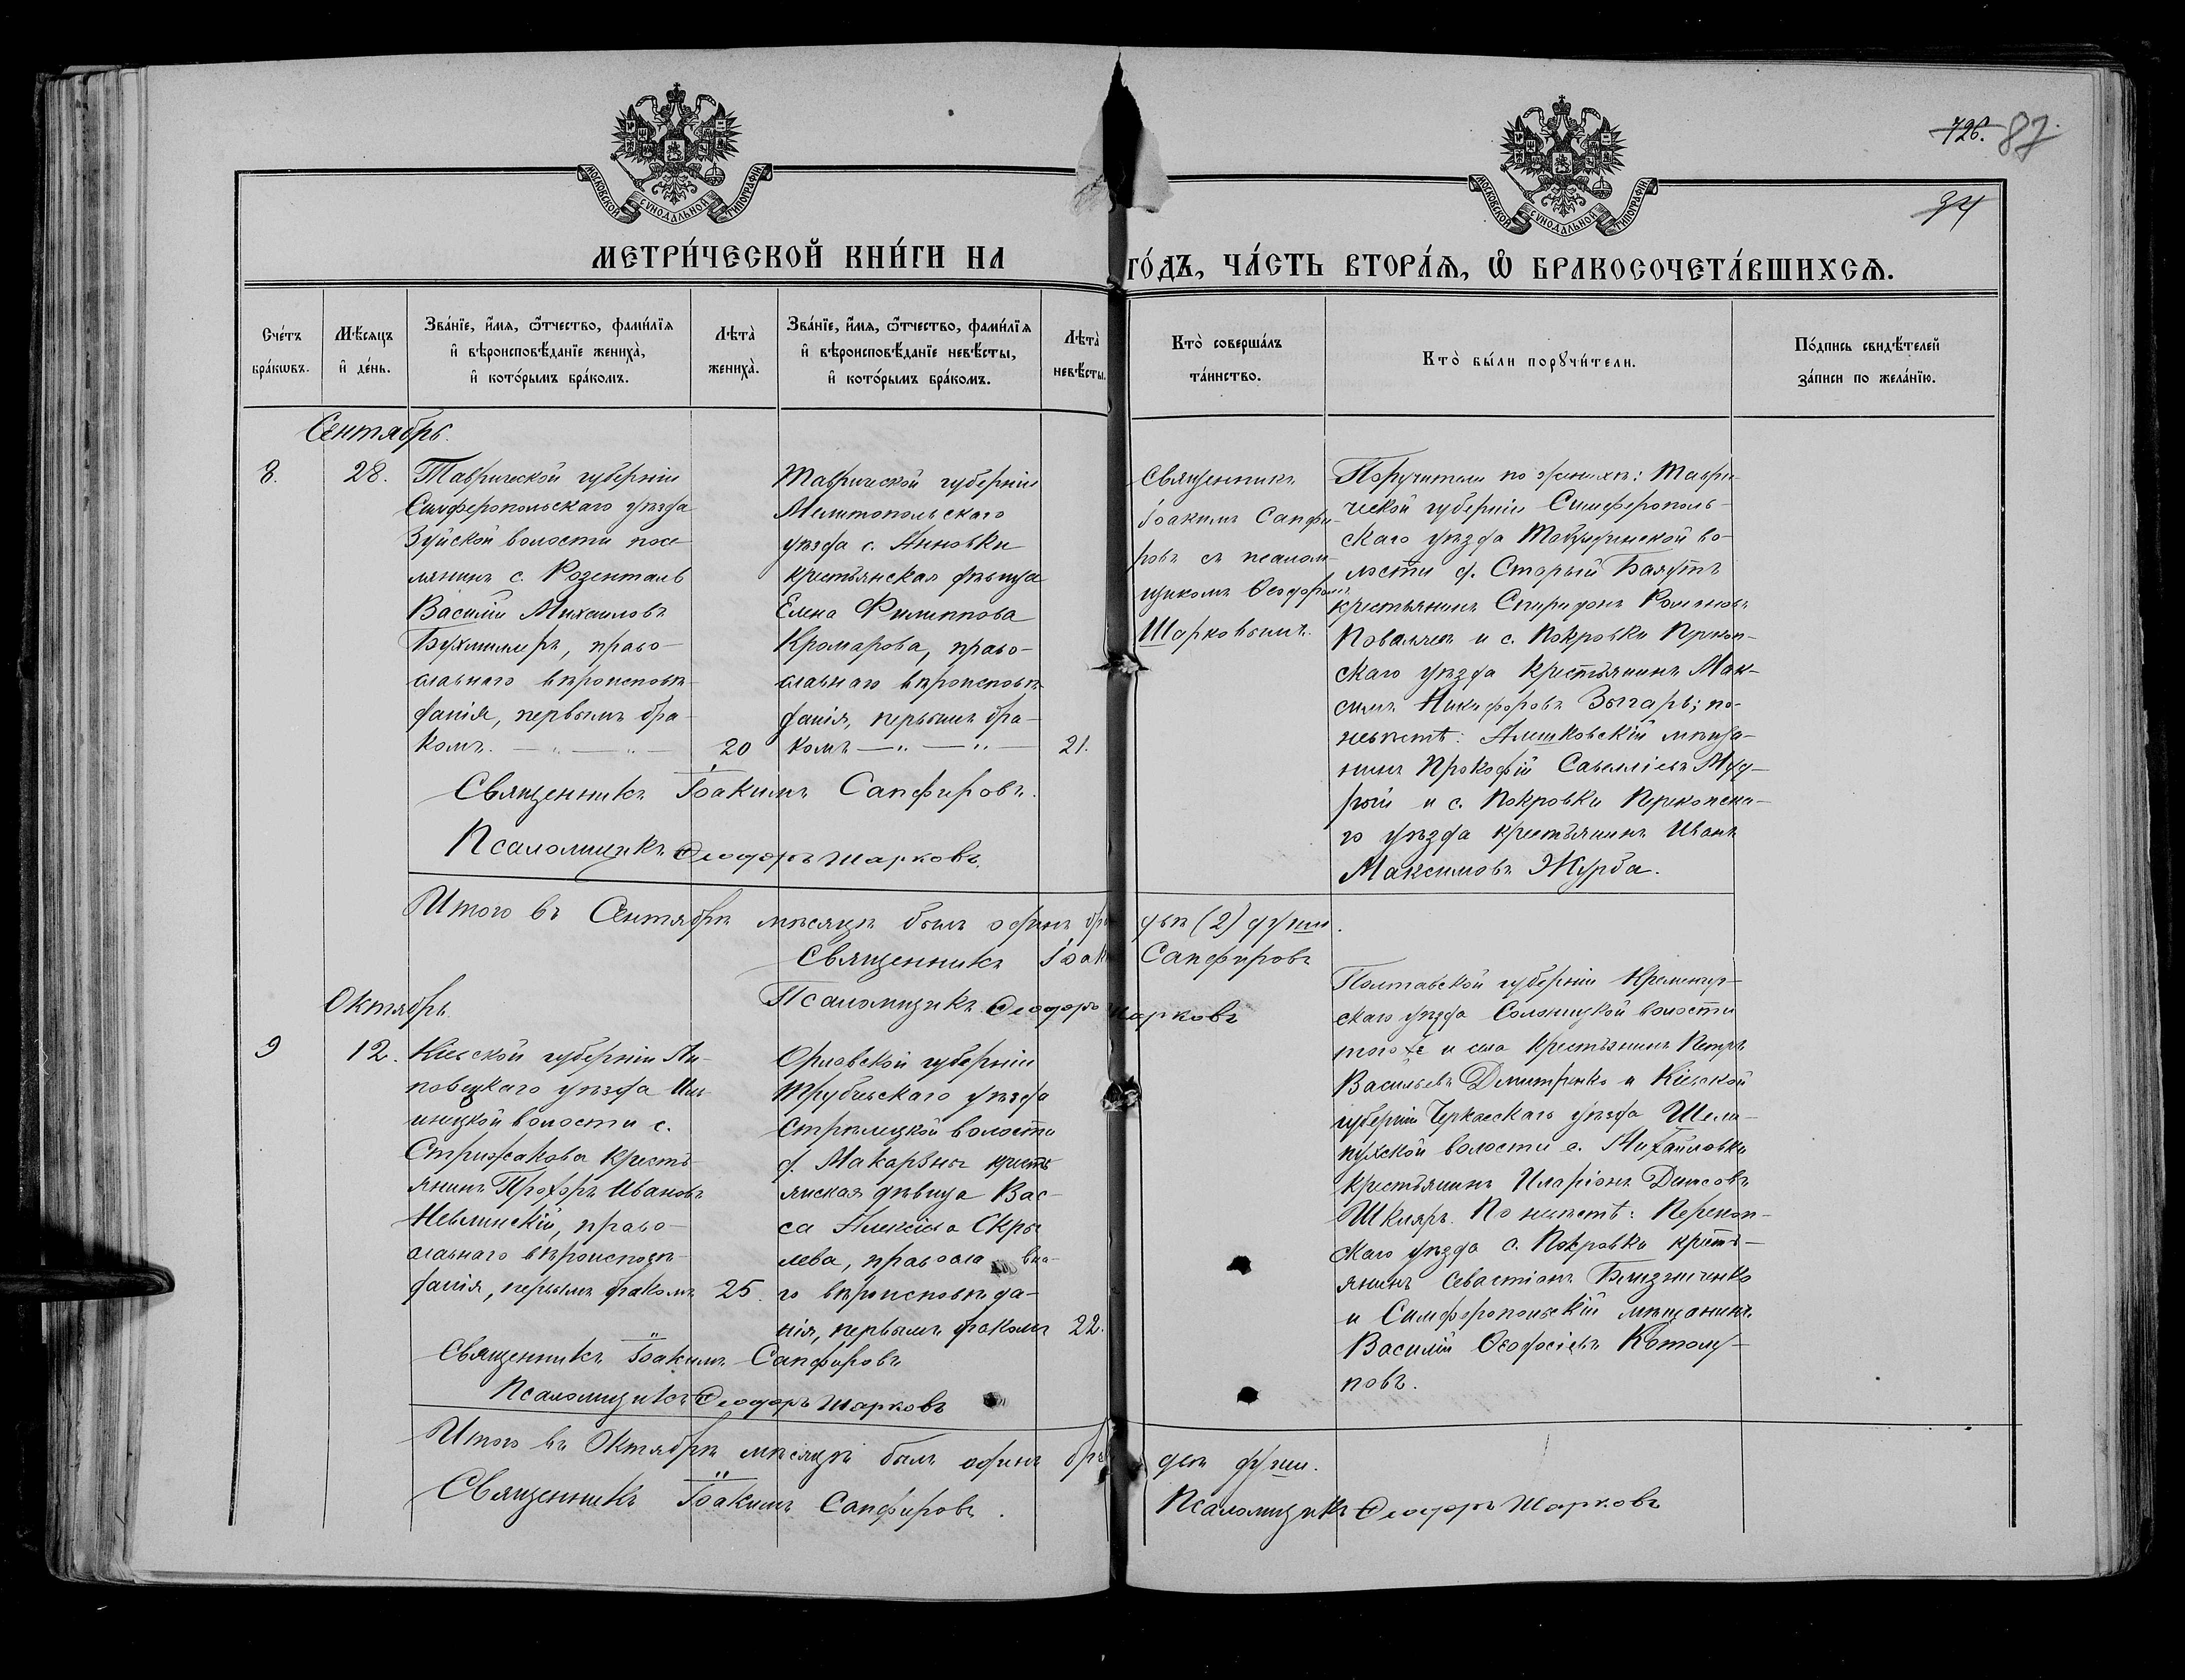 726. 87
94
МОСКОВСКОЙ СУНОДАЛЬНОЙ ТИПОГРАФІИ
МОСКОВСКОЙ СУНОДАЛЬНОЙ ТИПОГРАФІИ
МЕТРИ́ЧЕСКОЙ КНИ́ГИ НА ГО́ДЪ, ЧА́СТЬ ВТОРА́Ѧ, Ѽ БРАКОСОЧЕТА́ВШИХСѦ.
Сче́тъ бра́кѡвъ.
Мѣ́сяцъ и҆ де́нь.
Зва́нїе, и҆́мя, ѻ҆́тчество, фами́лїя
и҆ вѣроисповѣ́данїе жениха̀,
и҆ кото́рымъ бра́комъ.
Лѣта̀ жениха̀.
Зва́нїе, и҆́мя, ѻ҆́тчество, фами́лїя
и҆ вѣроисповѣ́данїе невѣ́сты,
и҆ кото́рымъ бра́комъ.
Лѣта̀ невѣ́сты.
Кто̀ совершáлъ
та́инство.
Кто̀ бы́ли порꙋчи́тели.
По́дпись свидѣ́телей
за́писи по жела́нїю.
Сентябрь.
8.
28.
Таврической губерніи
Симферопольскаго уѣзда
Зуйской волости посе-
лянинъ с. Розенталь
Василій Михаиловъ
Бухмиллеръ, право-
славнаго вѣроисповѣ-
данія, первымъ бра-
комъ.
20
Таврической губерніи
Мелитопольскаго
уѣзда с. Анновки
крестьянская дѣвица
Елена Филиппова
Кромарова, право-
славнаго вѣроисповѣ-
данія, первымъ бра-
комъ
21.
Священникъ
Іоакимъ Сапфи-
ровъ съ псалом-
щикомъ Ѳеодоромъ
Шарковымъ.
Поручители по женихѣ: Таври-
ческой губерніи Симферополь-
скаго уѣзда Табулдинской во-
лости д. Старый Баяутъ
крестьянинъ Спиридонъ Романовъ
Поваляев и с. Покровки Перекоп-
скаго уѣзда крестьянинъ Мак-
симъ Никифоровъ Зыгарь; по
невѣстѣ: Алешковскій мѣща-
нинъ Прокофій Савелліевъ Муд-
рый и с. Покровки Перекопска-
го уѣзда крестьянинъ Иванъ
Максимовъ Журба.
Священникъ Іоакимъ Сапфировъ.
Псаломщикъ Ѳеодоръ Шарковъ.
Итого въ Сентябрѣ мѣсяцѣ былъ одинъ бра двѣ (2) души.
Священникъ Іоаки Сапфировъ
Псаломщикъ Ѳеодоръ Шарковъ
Октябрь.
9
12.
Кіевской губерніи Ли-
повецкаго уѣзда Иль-
инецкой волости с.
Стрижакова кресть-
янинъ Прохоръ Ивановъ
Невлинскій, право-
славнаго вѣроисповѣ-
данія, первымъ бракомъ
25.
Орловской губерніи
Трубчевскаго уѣзда
Стрѣлецкой волости
д. Макарзны кресть
янская дѣвица Вас-
са Алексіева Скры
лева, правосла вна-
го вѣроисповѣда-
нія, первымъ бракомъ
22.
Полтавской губерніи Кременчуг-
скаго уѣзда Солоницкой волости
того же и села крестьянинъ Петръ
Васильевъ Дмитренко и Кіевской
губерніи Черкасскаго уѣзда Шели-
пухской волости с. Михайловки
крестьянинъ Иларіонъ Денисовъ
Шкляръ. По невѣстѣ: Перекоп-
скаго уѣзда с. Покровки кресть-
янинъ Севастіанъ Близниченко
и Симферопольскій мѣщанинъ
Василій Ѳеодосіевъ Котолу-
повъ.
Священникъ Іоакимъ Сапфировъ
Псаломщикъ Ѳеодоръ Шарковъ
Итого въ Октябрѣ мѣсяцѣ былъ одинъ бра двѣ души.
Священникъ Іоакимъ Сапфировъ.
Псаломщикъ Ѳеодоръ Шарковъ